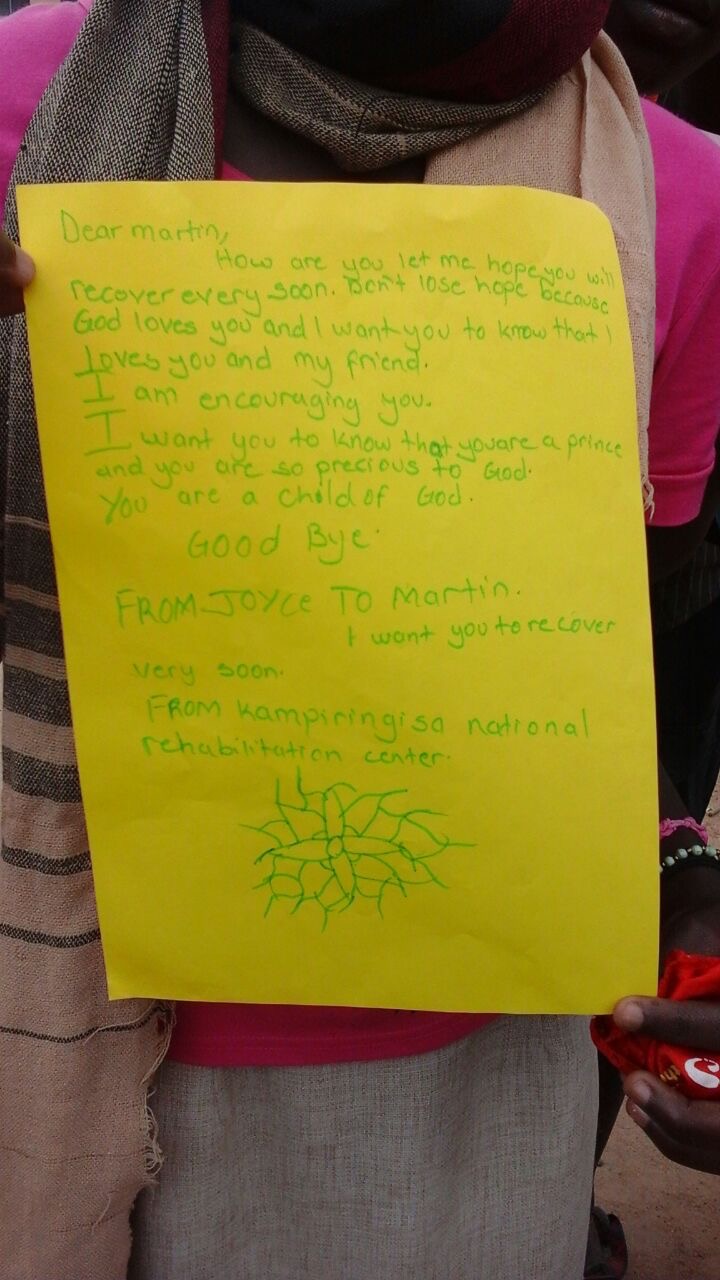 Dear martin,
How are you let me hope you will
recover every soon. Don't lose hope because
God loves you and I want you to know that I
Loves you and my friend.
I am encouraging you.
I want you to know that you are a prince
and you are so precious to God.
You are a child of God.
GOOD Bye.
FROM JOYCE TO Martin.
I want you to recover
very soon.
FROM Kampiringisa national
rehabilitation center.